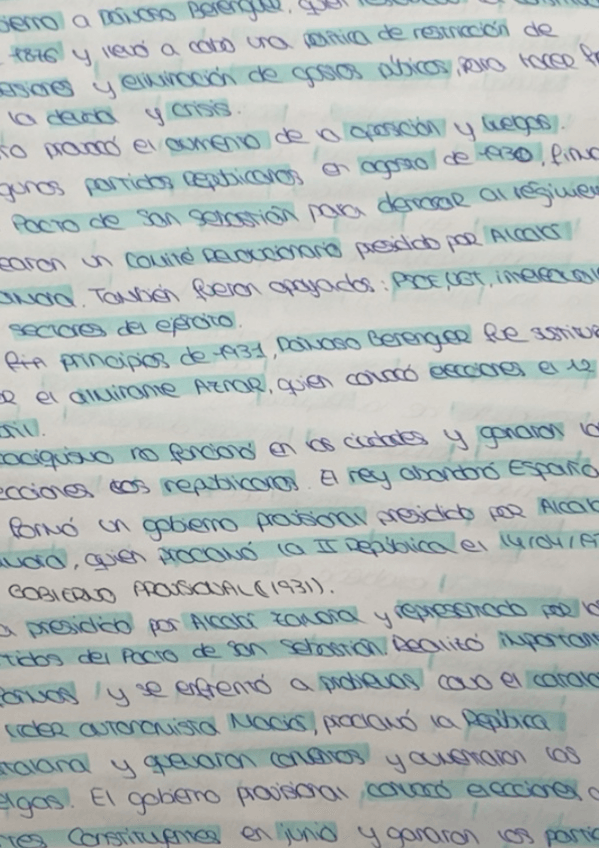 bierno a Dámaso Berenguer, quien
1876 y llevó a cabo una política de restricción de
esiones y eliminación de gastos públicos, para hacer fr
la deuda y crisis.
to provocó el aumento de la oposición y huelgas.
gunos partidos republicanos en agosto de 1930, firma
Pacto de San Sebastián para derrocar al régimen
earon un comité revolucionario presidido por Alcalá
amora. También fueron apoyados: PSOE, UGT, intelectuale
sectores del ejército.
En principios de 1931, Dámaso Berenguer fue sustitui
or el almirante Aznar, quien convocó elecciones el 12
bril.
caciquismo no funcionó en las ciudades y ganaron la
ecciones los republicanos. El rey abandonó España
formó un gobierno provisional presidido por Alcalá
mora, quien proclamó la II República el 14/04/19
GOBIERNO PROVISIONAL (1931).
a presidido por Alcalá Zamora y representado por lo
tidos del Pacto de San Sebastián. Realizó importan
formas y se enfrentó a problemas como el catalá
líder autonomista Maciá, proclamó la República
atalana y quemaron conventos y aumentaron las
elgas. El gobierno provisional convocó elecciones a
rtes Constituyentes en junio y ganaron los partid